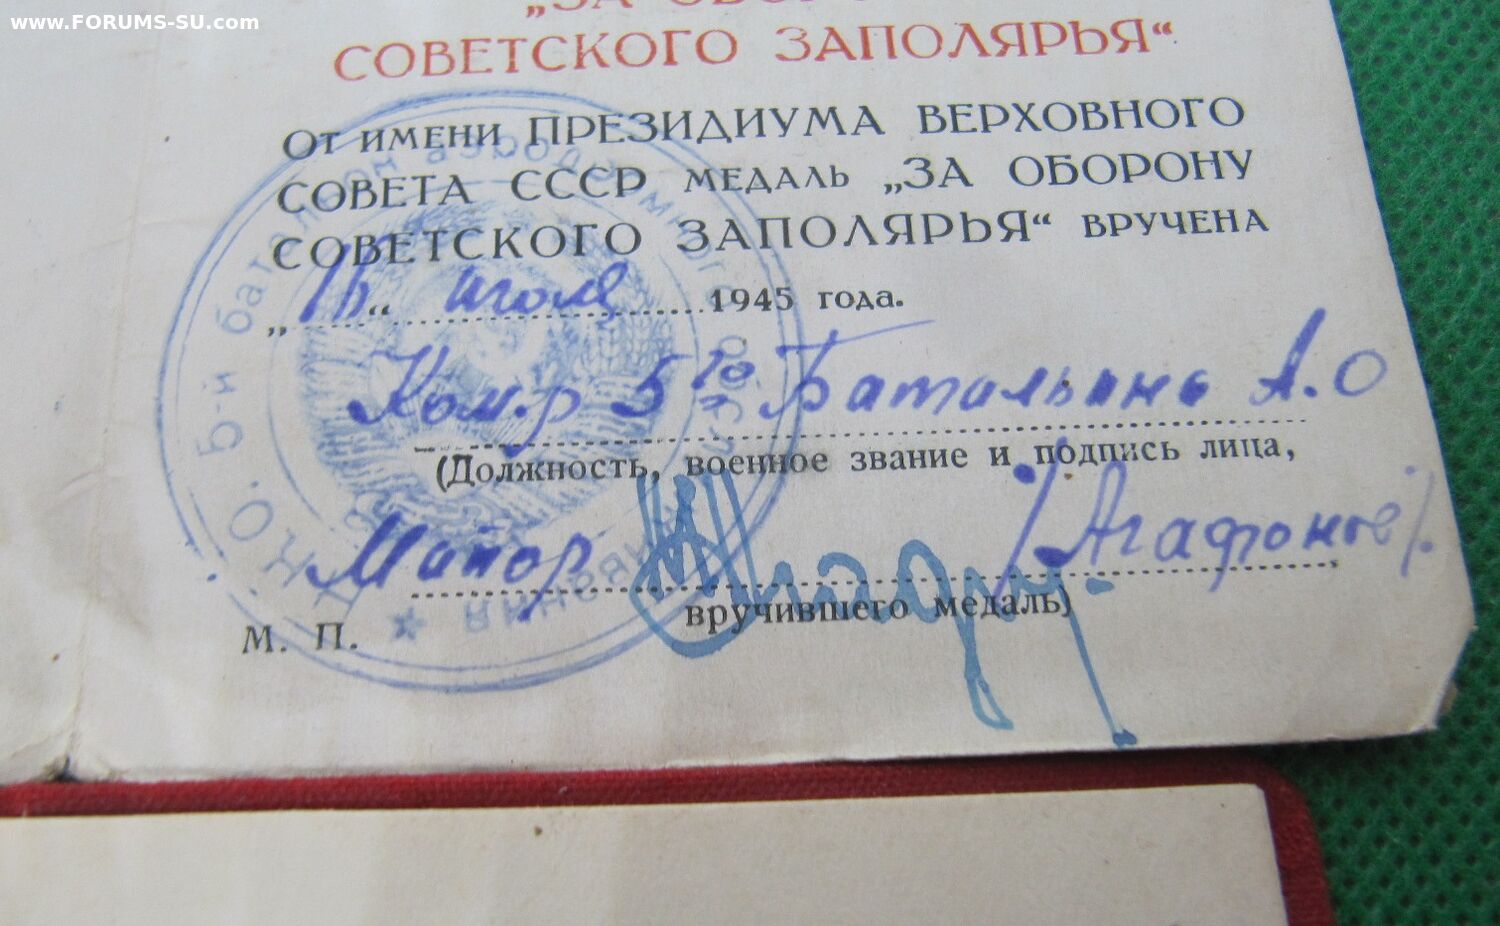 www.FORUMS-SU.com
„ЗА ОБОР
СОВЕТСКОГО ЗАПОЛЯРЬЯ“
От имени ПРЕЗИДИУМА ВЕРХОВНОГО
СОВЕТА СССР медаль „ЗА ОБОРОНУ
СОВЕТСКОГО ЗАПОЛЯРЬЯ“ вручена
„16“ июля 1945 года.
Ком.р 5го Батальона А.О
(Должность, военное звание и подпись лица,
Майор /Агафонов/.
вручившего медаль)
М. П.
Н.О. 5-й батальон аэродромного